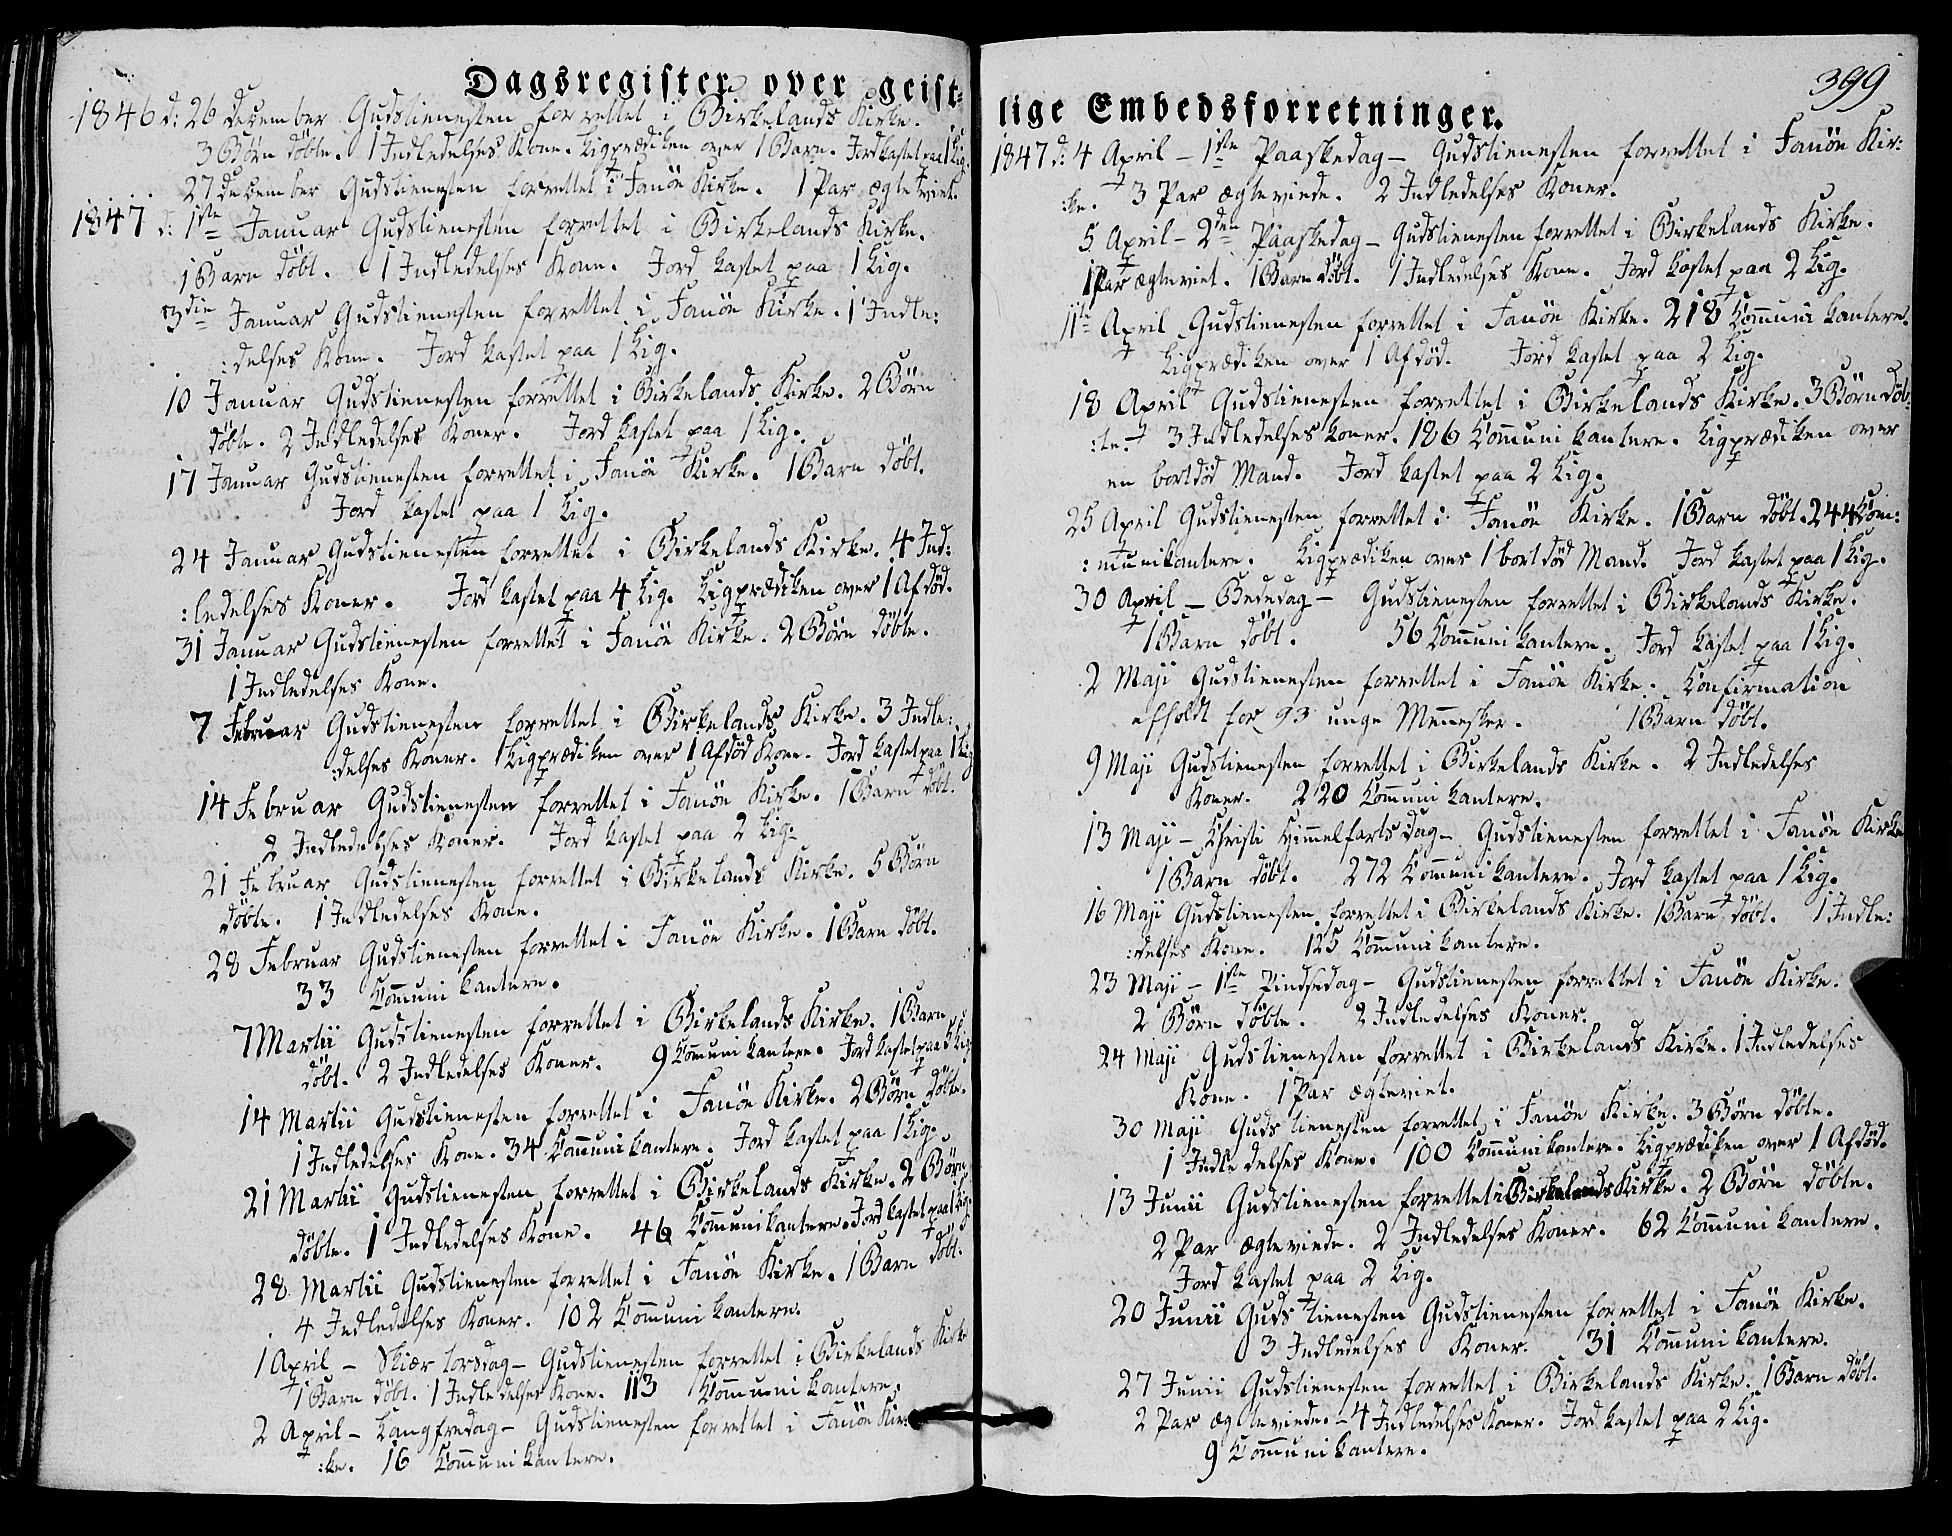 Dagsregister over geist-
1846 d: 26 december Gudstienesten forrettet i Birkelands Kirke.
3 Börn döbte. 1 Indledelses Kone. Ligprædiken over 1 Barn. Jord kastet paa 1 Lig.
27 december Gudstienesten forrettet i Fanöe Kirke. 1 Par ægteviet.
1847 d: 1ste Januar Gudstienesten forrettet i Birkelands Kirke.
1 Barn döbt. 1 Indledelses Kone. Jord kastet paa 1 Lig.
3die Januar Gudstienesten forrettet i Fanöe Kirke. 1 Indle:
:delses Kone. Jord kastet paa 1 Lig.
10 Januar Gudstienesten forrettet i Birkelands Kirke. 2 Börn
döbte. 2 Indledelses Koner. Jord kastet paa 1 Lig.
17 Januar Gudstienesten forrettet i Fanöe Kirke. 1 Barn döbt.
Jord kastet paa 1 Lig.
24 Januar Gudstienesten forrettet i Birkelands Kirke. 4 Ind:
:ledelses Koner. Jord kastet paa 4 Lig. Ligprædiken over 1 Afdöd.
31 Januar Gudstienesten forrettet i Fanöe Kirke. 2 Börn döbte.
1 Indledelses Kone.
7 Februar Gudstienesten forrettet i Birkelands Kirke. 3 Indle:
:delses Koner. Ligprædiken over 1 Afdöd Kone. Jord kastet paa 1 Lig
14 Februar Gudstienesten forrettet i Fanöe Kirke. 1 Barn döbt.
2 Indledelses Koner. Jord kastet paa 2 Lig.
21 Februar Gudstienesten forrettet i Birkelands Kirke. 5 Börn
döbte. 1 Indledelses Kone.
28 Februar Gudstienesten forrettet i Fanöe Kirke. 1 Barn döbt.
33 Communikantere.
7 Martii Gudstienesten forrettet i Birkelands Kirke. 1 Barn
döbt. 2 Indledelses Koner. 9 Communikantere. Jord kastet paa 5 Lig.
14 Martii Gudstienesten forrettet i Fanöe Kirke. 2 Börn döbte.
1 Indledelses Kone. 34 Communikantere. Jord kastet paa 1 Lig.
21 Martii Gudstienesten forrettet i Birkelands Kirke. 2 Börn
döbte. 1 Indledelses Kone. 46 Communikantere. Jord kastet paa 1 Lig.
28 Martii Gudstienesten forrettet i Fanöe Kirke. 1 Barn döbt.
4 Indledelses Koner. 102 Communikantere.
1 April – Skiær torsdag – Gudstienesten forrettet i Birkelands Kirke
1 Barn döbt. 1 Indledelses Kone. 113 Communikantere.
2 April – Langfredag – Gudstienesten forrettet i Fanöe Kir:
:ke. 16 Communikantere.
399
lige Embedsforretninger.
1847 d: 4 April – 1ste Paaskedag – Gudstienesten forrettet i Fanöe Kir:
:ke. 3 Par ægteviede. 2 Indledelses Koner.
5 April – 2den Paaskedag – Gudstienesten forrettet i Birkelands Kirke.
1 Par ægteviet. 1 Barn döbt. 1 Indledelses Kone. Jord kastet paa 2 Lig.
11te April Gudstienesten forrettet i Fanöe Kirke. 218 Communikantere.
Ligprædiken over 1 Afdöd. Jord kastet paa 2 Lig.
18 April Gudstienesten forrettet i Birkelands Kirke. 3 Börn döb:
:te. 3 Indledelses koner. 186 Communikantere. Ligprædiken over
en bortdöd Mand. Jord kastet paa 2 Lig.
25 April Gudstienesten forrettet i Fanöe Kirke. 1 Barn döbt. 244 Com:
:munikantere. Ligprædiken over 1 bortdöd Mand. Jord kastet paa 1 Lig.
30 April – Bededag – Gudstienesten forrettet i Birkelands Kirke.
1 Barn döbt. 56 Communikantere. Jord kastet paa 1 Lig.
2 Maji Gudstienesten forrettet i Fanöe Kirke. Confirmation
afholdt for 93 unge Mennesker. 1 Barn döbt.
9 Maji Gudstienesten forrettet i Birkelands Kirke. 2 Indledelses
Koner. 220 Communikantere.
13 Maji – Christi Himmelfartsdag – Gudstienesten forrettet i Fanöe Kirke
1 Barn döbt. 272 Communikantere. Jord kastet paa 1 Lig.
16 Maji Gudstienesten forrettet i Birkelands Kirke. 1 Barn döbt. 1 Indle:
:delses Kone. 125 Communikantere.
23 Maji – 1ste Pindsedag – Gudstienesten forrettet i Fanöe Kirke.
2 Börn döbte. 2 Indledelses Koner.
24 Maji Gudstienesten forrettet i Birkelands Kirke. 1 Indledelses
Kone. 1 Par ægteviet.
30 Maji Gudstienesten forrettet i Fanöe Kirke. 3 Börn döbte.
1 Indledelses Kone. 100 Communikantere. Ligprædiken over 1 Afdöd.
13 Junii Gudstienesten forrettet i Birkelands Kirke. 2 Börn döbte.
2 Par ægteviede. 2 Indledelses Koner. 62 Communikantere.
Jord kastet paa 2 Lig.
20 Junii Gudstienesten Gudstienesten forrettet i Fanöe Kirke.
3 Indledelses Koner. 31 Communikantere.
27 Junii Gudstienesten forrettet i Birkelands Kirke. 1 Barn döbt.
2 Par ægteviede. – 4 Indledelses Koner. Jord kastet paa 2 Lig.
9 Communikantere.